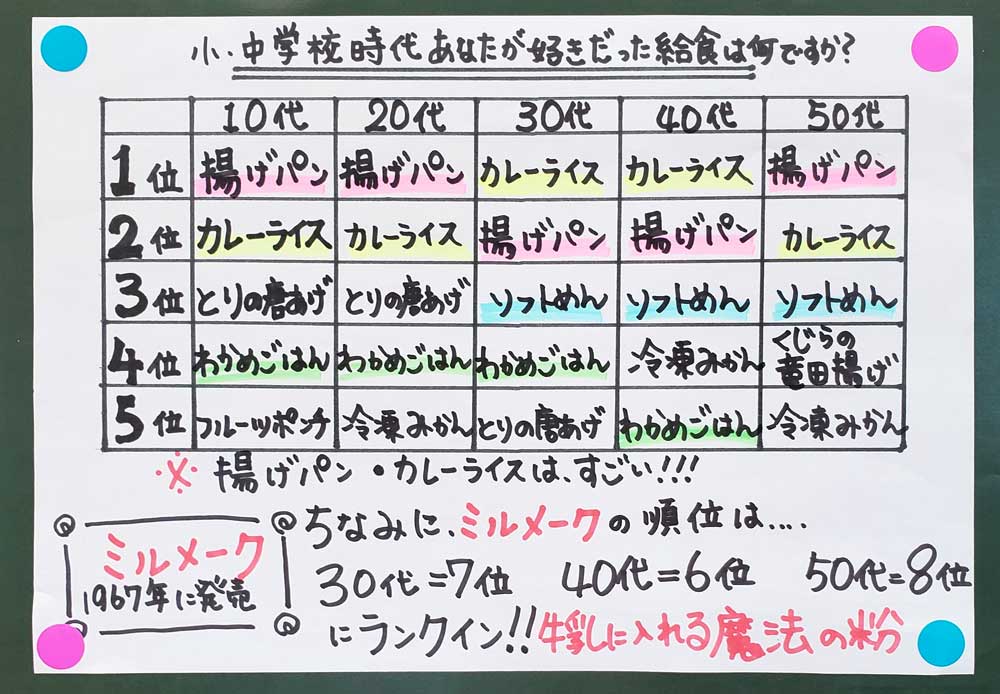 小・中学校時代あなたが好きだった給食は何ですか?
10代 20代 30代 40代 50代
1位 揚げパン 揚げパン カレーライス カレーライス 揚げパン
2位 カレーライス カレーライス 揚げパン 揚げパン カレーライス
3位 とりの唐あげ とりの唐あげ ソフトめん ソフトめん ソフトめん
4位 わかめごはん わかめごはん わかめごはん 冷凍みかん くじらの竜田揚げ
5位 フルーツポンチ 冷凍みかん とりの唐あげ わかめごはん 冷凍みかん
※ 揚げパン・カレーライスは、すごい!!!
ミルメーク
1967年に発売
ちなみに、ミルメークの順位は....
30代=7位 40代=6位 50代=8位
にランクイン!!牛乳に入れる魔法の粉